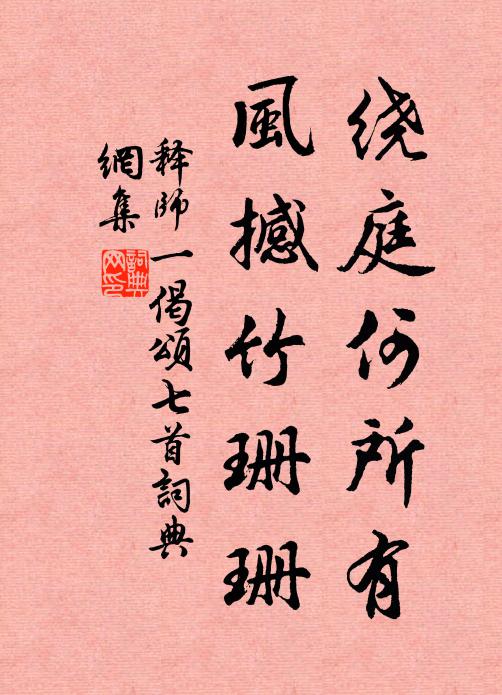 绕庭何所有
風撼竹珊珊
释師一偈頌七首詞典
網集
詞典
网印